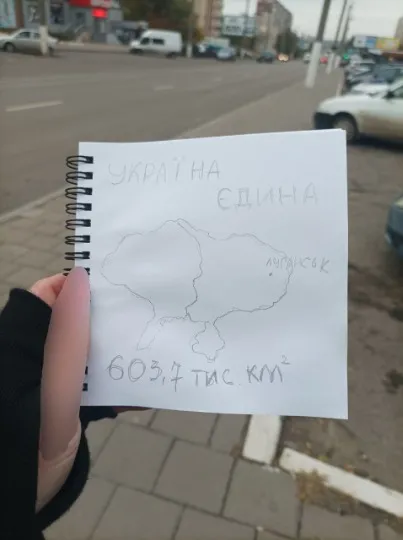 УКРАЇНА
ЄДИНА
ЛУГАНСЬК
603,7 ТИС КМ²